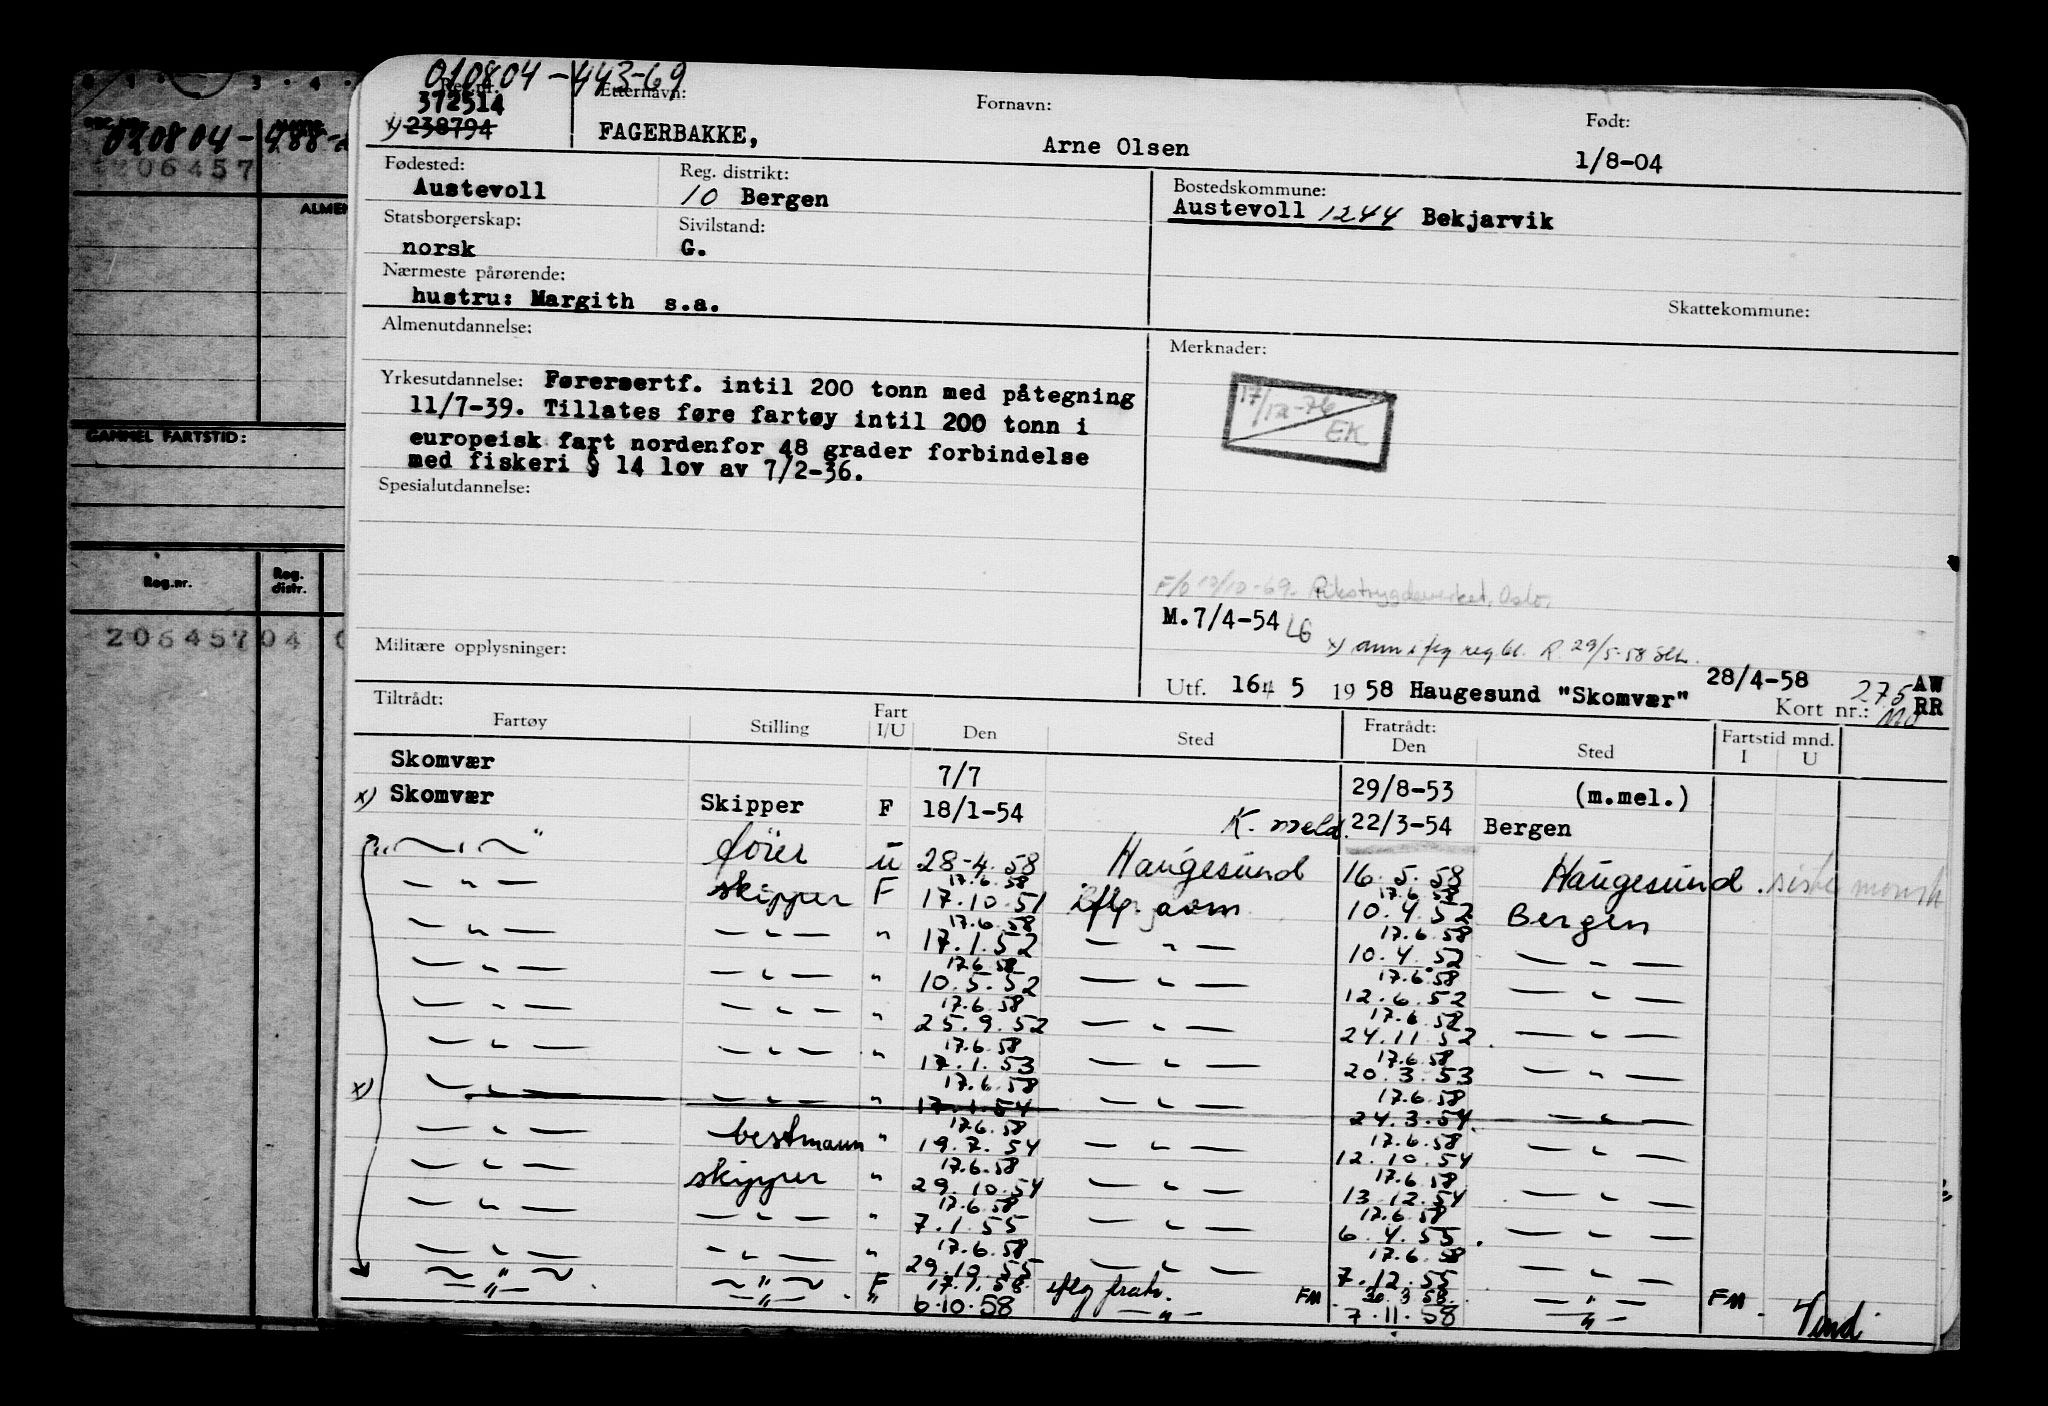 010804-443-69
Reg.nr. Etternavn: Fornavn: Født:
372514
x) 238794 FAGERBAKKE, Arne Olsen 1/8-04
Fødested: Reg. distrikt: Bostedskommune:
Austevoll 10 Bergen Austevoll 1244 Bekjarvik
Statsborgerskap: Sivilstand:
norsk G.
Nærmeste pårørende:
hustru: Margith s.a.
Skattekommune:
Almenutdannelse: Merknader:
Yrkesutdannelse: Førersertf. intil 200 tonn med påtegning
11/7-39. Tillates føre fartøy intil 200 tonn i
europeisk fart nordenfor 48 grader forbindelse
med fiskeri § 14 lov av 7/2-36.
17/12-76
EK
Spesialutdannelse:
F/o 10/10-69. Rikstrygdeverket, Oslo.
M.7/4-54 LG
x) ann i flg reg bl. R. 29/5-58
Militære opplysninger:
Utf. 16/5 1958 Haugesund "Skomvær" 28/4-58 AW
Kort nr.: 275 RR
Tiltrådt: Fratrådt: Fartstid mnd.
Fartøy Stilling Fart I/U Den Sted Den Sted I U
Skomvær 7/7 29/8-53 (m.mel.)
x) Skomvær Skipper F 18/1-54 K. meld. 22/3-54 Bergen
— " — fører u 28-4.58 Haugesund 16.5.58 Haugesund. siste mønstr
— " — skipper F 17.6.58 17.10.51 iflg. 17.6.58 10.4.52 Bergen
— " — — " — " 17.6.58 17.1.52 — " — 17.6.58 10.4.52 — " —
— " — — " — " 17.6.58 10.5.52 — " — 17.6.58 12.6.52 — " —
— " — — " — " 17.6.58 25.9.52 — " — 17.6.58 24.11.52. — " —
— " — — " — " 17.6.58 17.1.53 — " — 17.6.58 20.3.53 — " —
x) — " — — " — " 17.6.58 17.1.54 — " — 17.6.58 24.3.54. — " —
— " — bestmann " 17.6.58 19.7.54 — " — 17.6.58 12.10.54 — " —
— " — skipper " 17.6.58 29.10.54 — " — 17.6.58 13.12.54 — " —
— " — — " — " 17.6.58 7.1.55 — " — 17.6.58 6.4.55. — " —
— " — — " — " 17.6.58 29.10.55 — " — 17.6.58 7.12.55 — " —
— " — — " — F 17.1.58 iflg frakt. FM 30.3.58 — " — FM
— " — — " — " 6.10.58 — " — 7.11.58 — " — Vend.
010804-488-
206457
ALMEN
GAMMEL FARTSTID:
Reg.nr. Reg. distr.
206457 04